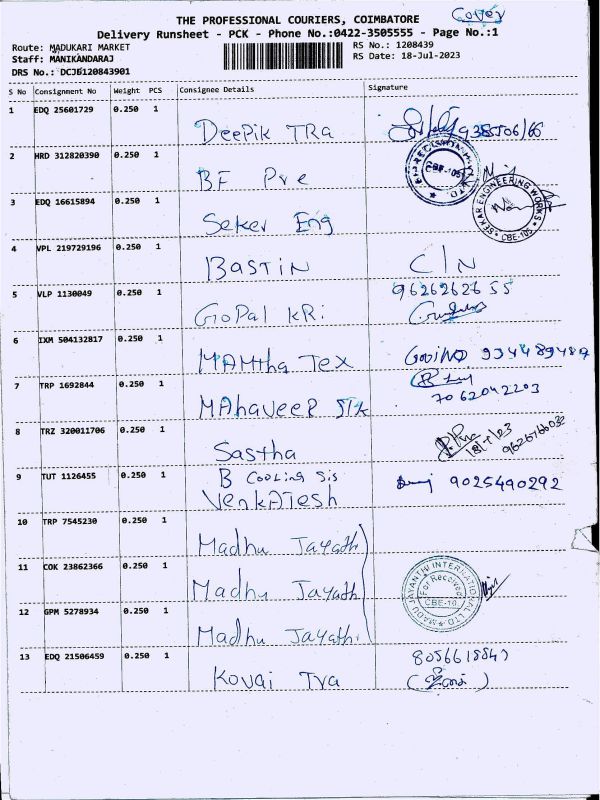 Cover
THE PROFESSIONAL COURIERS, COIMBATORE
Delivery Runsheet - PCK - Phone No.:0422-3505555 - Page No.:1
Route: MADUKARI MARKET
RS No.: 1208439
Staff: MANIKANDARAJ
RS Date: 18-Jul-2023
DRS No.: DCJB120843901
S No Consignment No Weight PCS Consignee Details Signature
1 EDQ 25601729 0.250 1
DeePik TRa
2 HRD 312820390 0.250 1
BF Pre
3 EDQ 16615894 0.250 1
Seker Eng
SEKAR ENGINEERING WORKS CBE-105
4 VPL 219729196 0.250 1
BASTIN C/N
5 VLP 1130049 0.250 1
9626262655
GoPal kRi
6 IXM 504132817 0.250 1
MAMtha Tex
7 TRP 1692844 0.250 1
7062042203
MAhaveeR Slk
8 TRZ 320011706 0.250 1
Sastha
9 TUT 1126455 0.250 1
B Cooling Sis
9025490292
VenkATesh
10 TRP 7545230 0.250 1
Madhu Jayathi
11 COK 23862366 0.250 1
Madhu Jayathi
MADHU JAYANTHI INTERNATIONAL LTD
For Received
CBE-10
12 GPM 5278934 0.250 1
Madhu Jayathi
13 EDQ 21506459 0.250 1
Kovai Tra